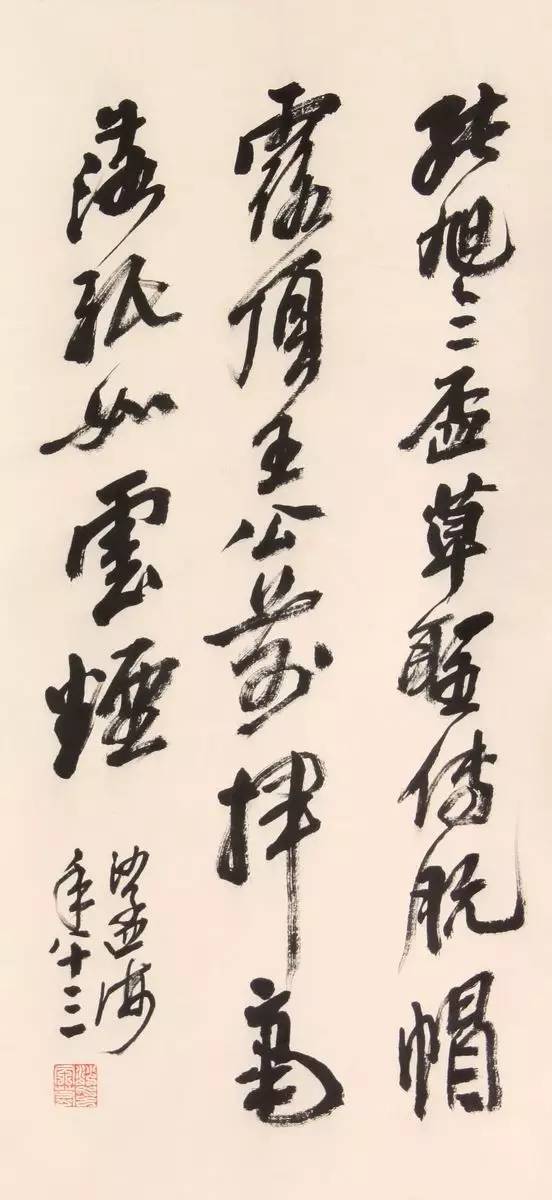 張旭三盃草聖傳脱帽
露頂王公前揮毫
落紙如雲煙
沙孟海
年八十三